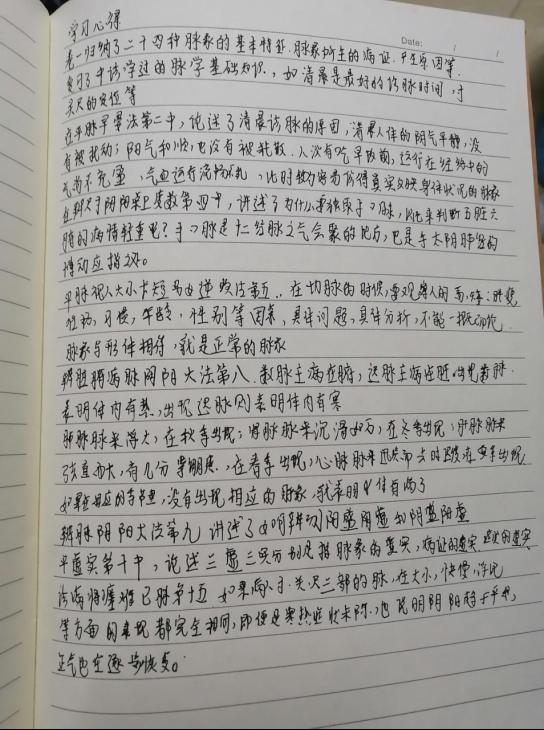 学习心得
Date: / /
卷一归纳了二十四种脉象的基本特征.脉象所主的病证.产生原因等.
复习了中诊学过的脉学基础知识.,如清晨是最好的诊脉时间,寸
关尺的定位 等
在平脉早晏法第二中,论述了清晨诊脉的原因,清晨人体的阴气平静,没
有被扰动;阳气和顺,也没有被耗散.人没有吃早饭前,运行在经络中的
气尚不充盈,气血运行流畅,此时较容易获得真实反映身体状况的脉象
在辨尺寸阴阳荣卫度数第四中,讲述了为什么单独取寸口脉,以此来判断五脏六
腑的病情轻重呢?寸口脉是十二经脉之气会聚的地方,也是手太阴肺经的
搏动应指之处。
平脉视人大小长短男女逆顺法第五..在切脉的时候,要观察人的高,矮;胖瘦
性格,习惯,年龄,性别等因素,具体问题,具体分析,不能一概而论.
脉象与形体相符,就是正常的脉象
辨脏腑病脉阴阳大法第八.数脉主病在腑,迟脉主病在脏.出现数脉.
表明体内有热,出现迟脉则表明体内有寒
肺脉脉来浮大,在秋季出现;肾脉脉来沉滑如石,在冬季出现;肝脉脉来
弦直而长,有几分,在春季出现,心脉脉来迅疾而去时缓在夏季出现
如果在相应的季节里,没有出现相应的脉象,就表明身体有病了
辨脉阴阳大法第九 讲述了如何辨别阳盛阴虚和阴盛阳虚
平虚实第十中,论述三虚三实分别是指脉象的虚实,病证的虚实 的虚实
诊病将瘥难已脉第十五 如果病人寸.关.尺三部的脉,在大小,快慢,浮沉
等方面的表现都完全相同,即便是寒热症状未除,也说明阴阳趋于平和,
正气也在逐步恢复。